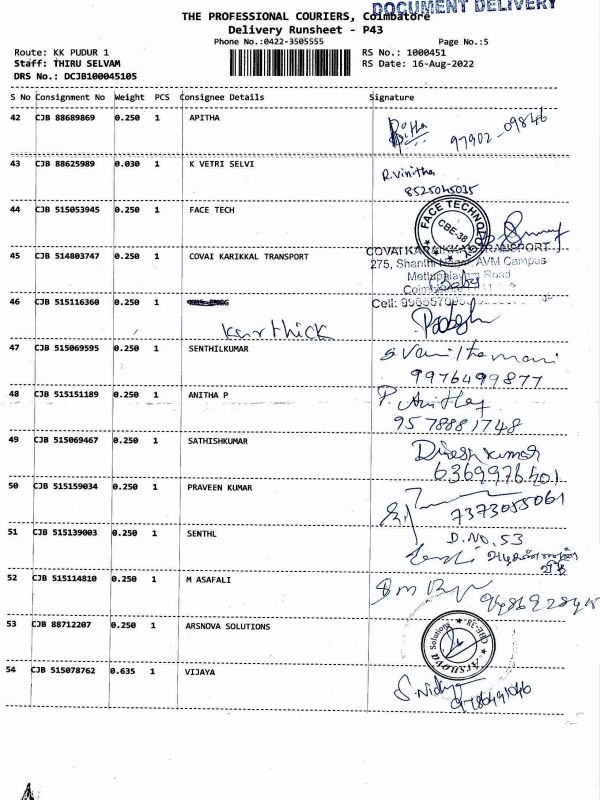 DOCUMENT DELIVERY
THE PROFESSIONAL COURIERS, Coimbatore
Delivery Runsheet - P43
Phone No.:0422-3505555
Page No.:5
Route: KK PUDUR 1
RS No.: 1000451
Staff: THIRU SELVAM
RS Date: 16-Aug-2022
DRS No.: DCJB100045105
S No Consignment No Weight PCS Consignee Details Signature
42 CJB 88689869 0.250 1 APITHA
97902-09846
43 CJB 88625989 0.030 1 K VETRI SELVI R.Vinitha
8525045035
44 CJB 515053945 0.250 1 FACE TECH
FACE TECHNOLOGY CBE-38
45 CJB 514803747 0.250 1 COVAI KARIKKAL TRANSPORT
COVAI KARAIKKAL TRANSPORT
275, Shanthi Nagar, AVM Campus
Mettupalayam Road
46 CJB 515116360 0.250 1
Karthick
47 CJB 515069595 0.250 1 SENTHILKUMAR S Vanithamani
9976499877
48 CJB 515151189 0.250 1 ANITHA P P. Anitha
9578881748
49 CJB 515069467 0.250 1 SATHISHKUMAR Dinesh kumar
50 CJB 515159034 0.250 1 PRAVEEN KUMAR
7373055061
51 CJB 515139003 0.250 1 SENTHL D.NO.53
52 CJB 515114810 0.250 1 M ASAFALI
53 CJB 88712207 0.250 1 ARSNOVA SOLUTIONS
Arsnova Solutions CBE-38
54 CJB 515078762 0.635 1 VIJAYA
S.Nidhya